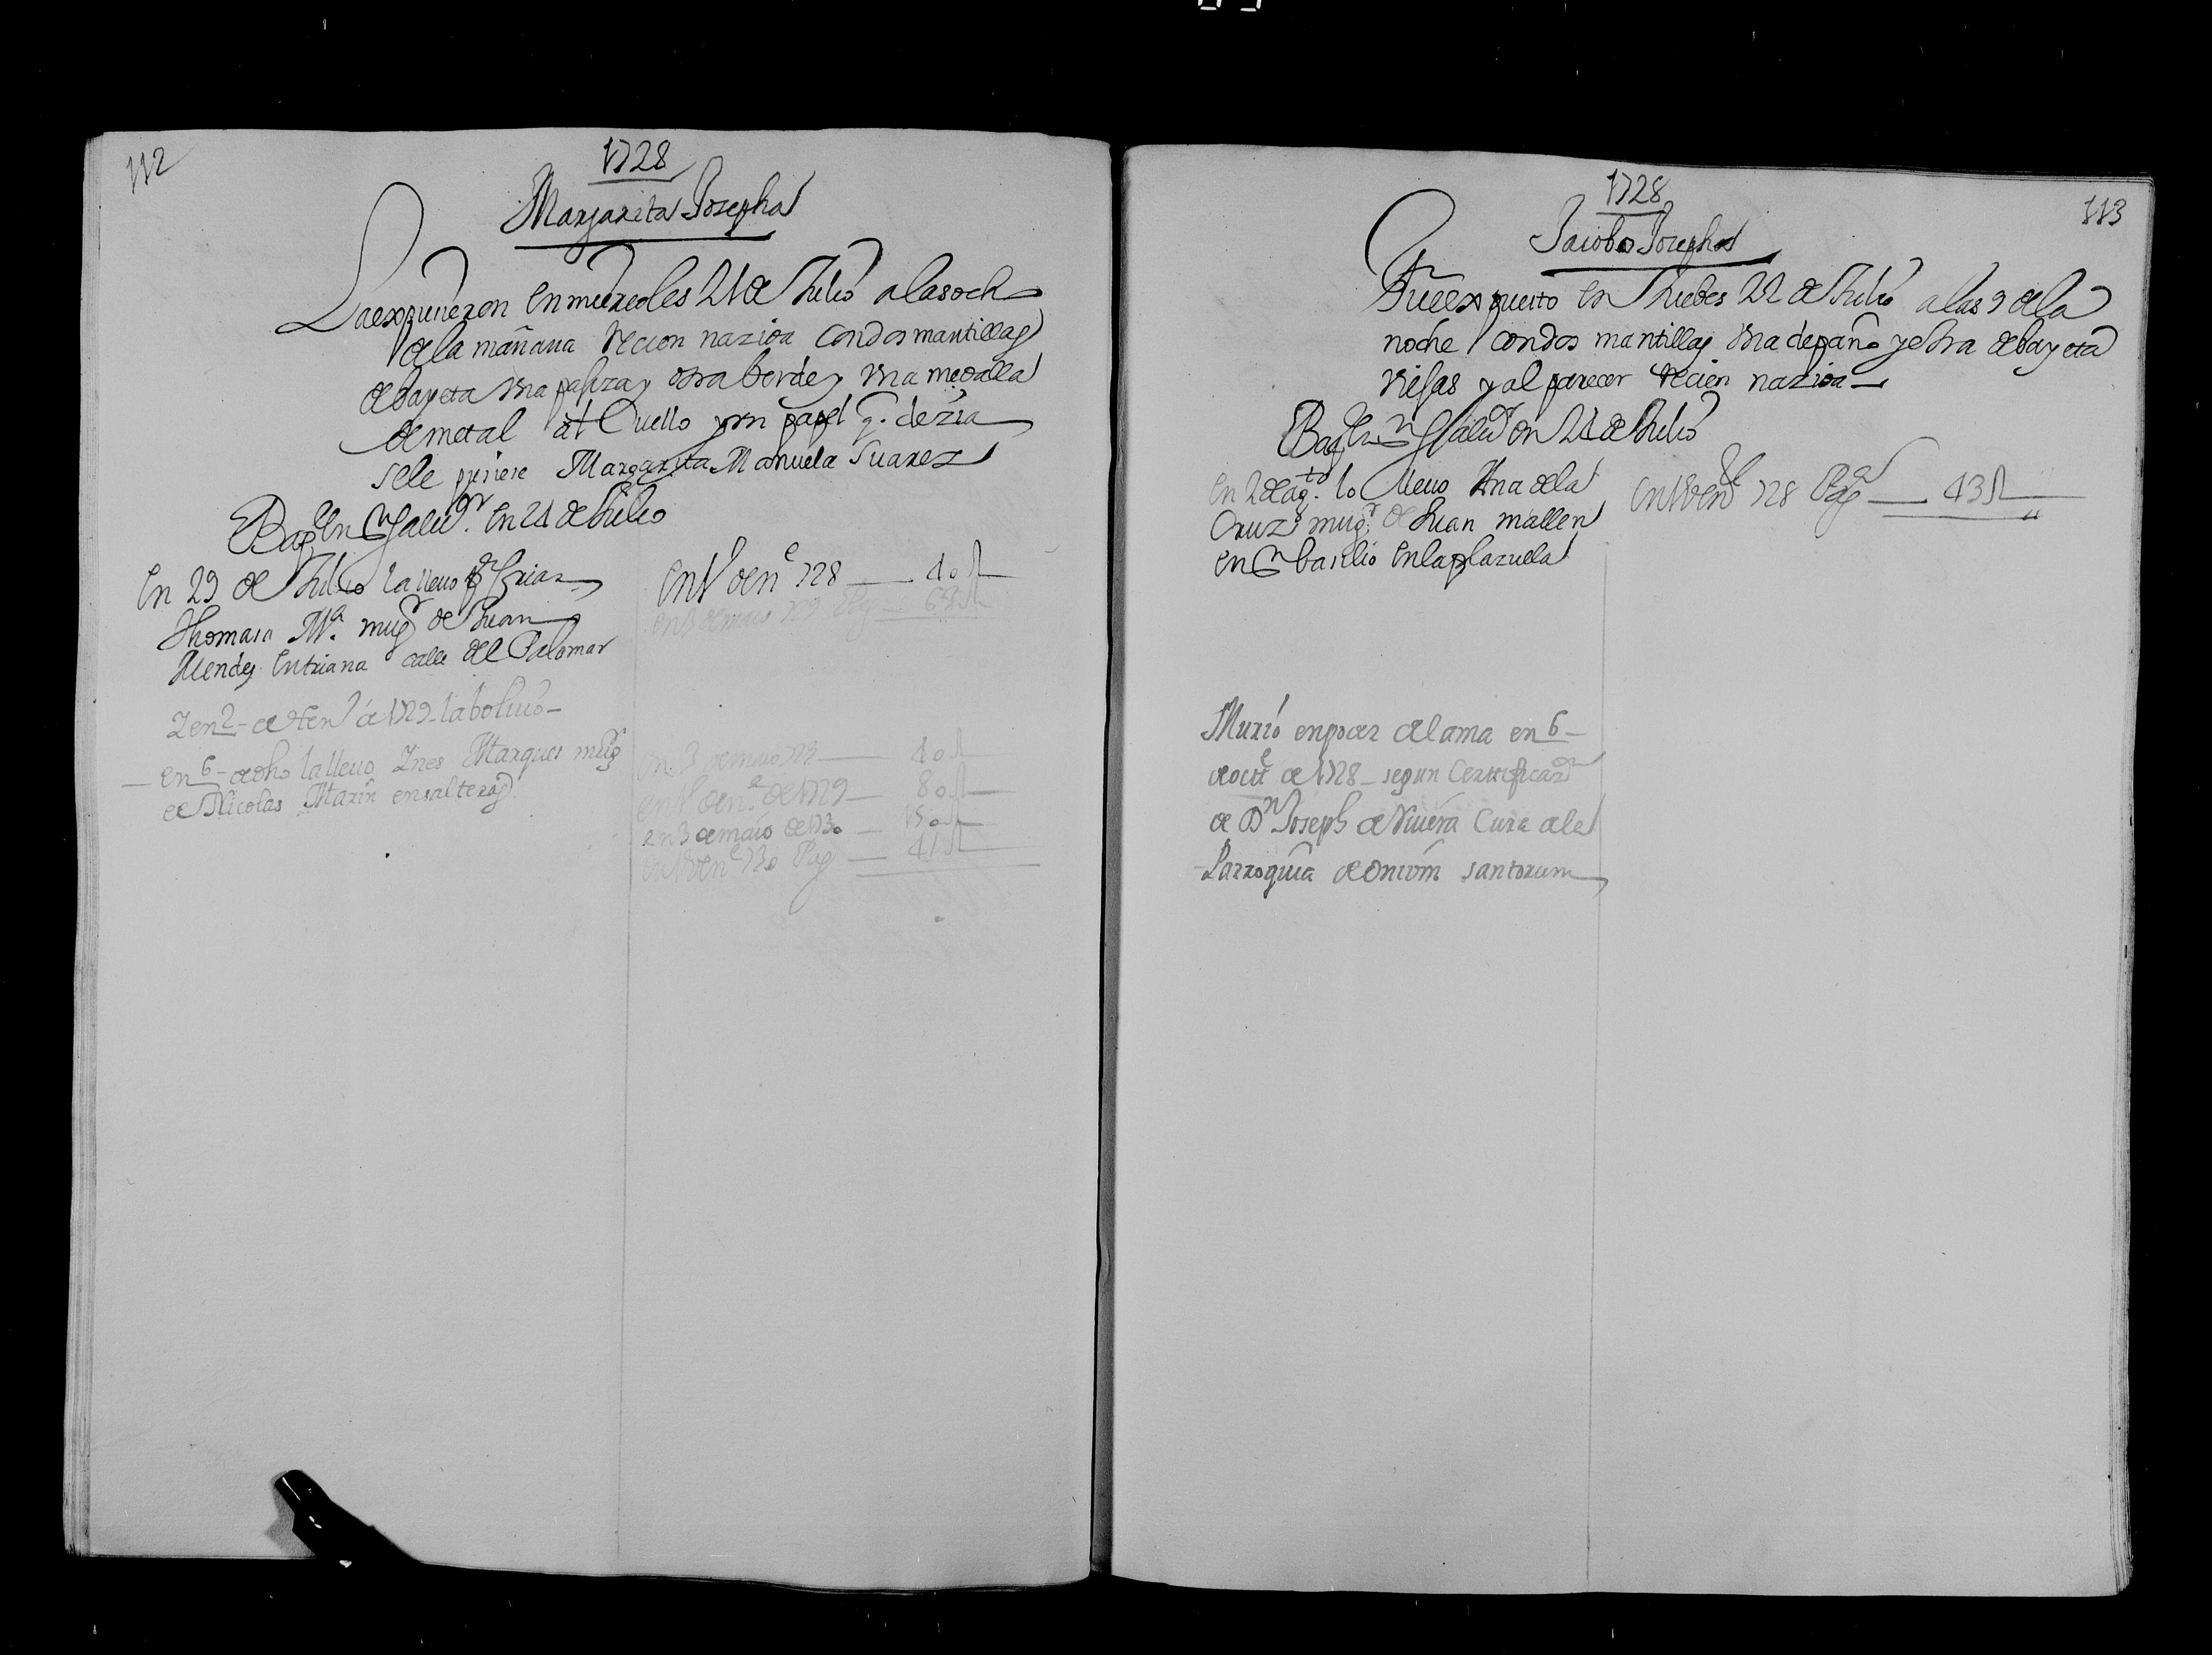 112
1728
Margarita Josepha
La expusieron en miercoles 21 de Julio a las och
de la mañana recien nazida con dos mantillas
de bayeta una pajiza y otra berde y una medalla
de metal al Cuello y un papel q. dezia
se le pusiese Margarita Manuela Suarez
Bap.da en Sn Salvr. en 21 de Julio
En 29 de Julio la llevo pa Criar
Thomasa Ma. mugr de Juan
Mendes en triana calle del Palomar
en 1º de ne 728 — 40 r
en 3 de maio 729 Pag — 63 r
I en 2 - de fen de 1729 - la bolvio -
en 6 - de dho la llevo Ines Marques mugr
de Nicolas Marin en salteras
en 3 de maio 729 — 40 r
en 1º de ne. de 1729 — 80 r
en 3 de maio de 1730 — 150 r
en 1º de ne 730 Pag — 41 r
1728
113
Jacobo Josepho
Fue expuesto en Juebes 22 de Julio a las 9 de la
noche con dos mantillas una de paño y otra de bayeta
viejas y al parecer recien nazido —
Bap.do en Sn Salvr en 24 de Julio
en 2 de agto. lo llevo Ana de la
Cruz mugr. de Juan mallen
en Sn basilio en la plazuela
en 1º de ne 728 Pag — 43 r
Murio en poder del ama en 6 —
de octe de 1728 — segun Certificazn
de Dn Joseph de Rivera Cura de la
Parroquia de Omium santorum